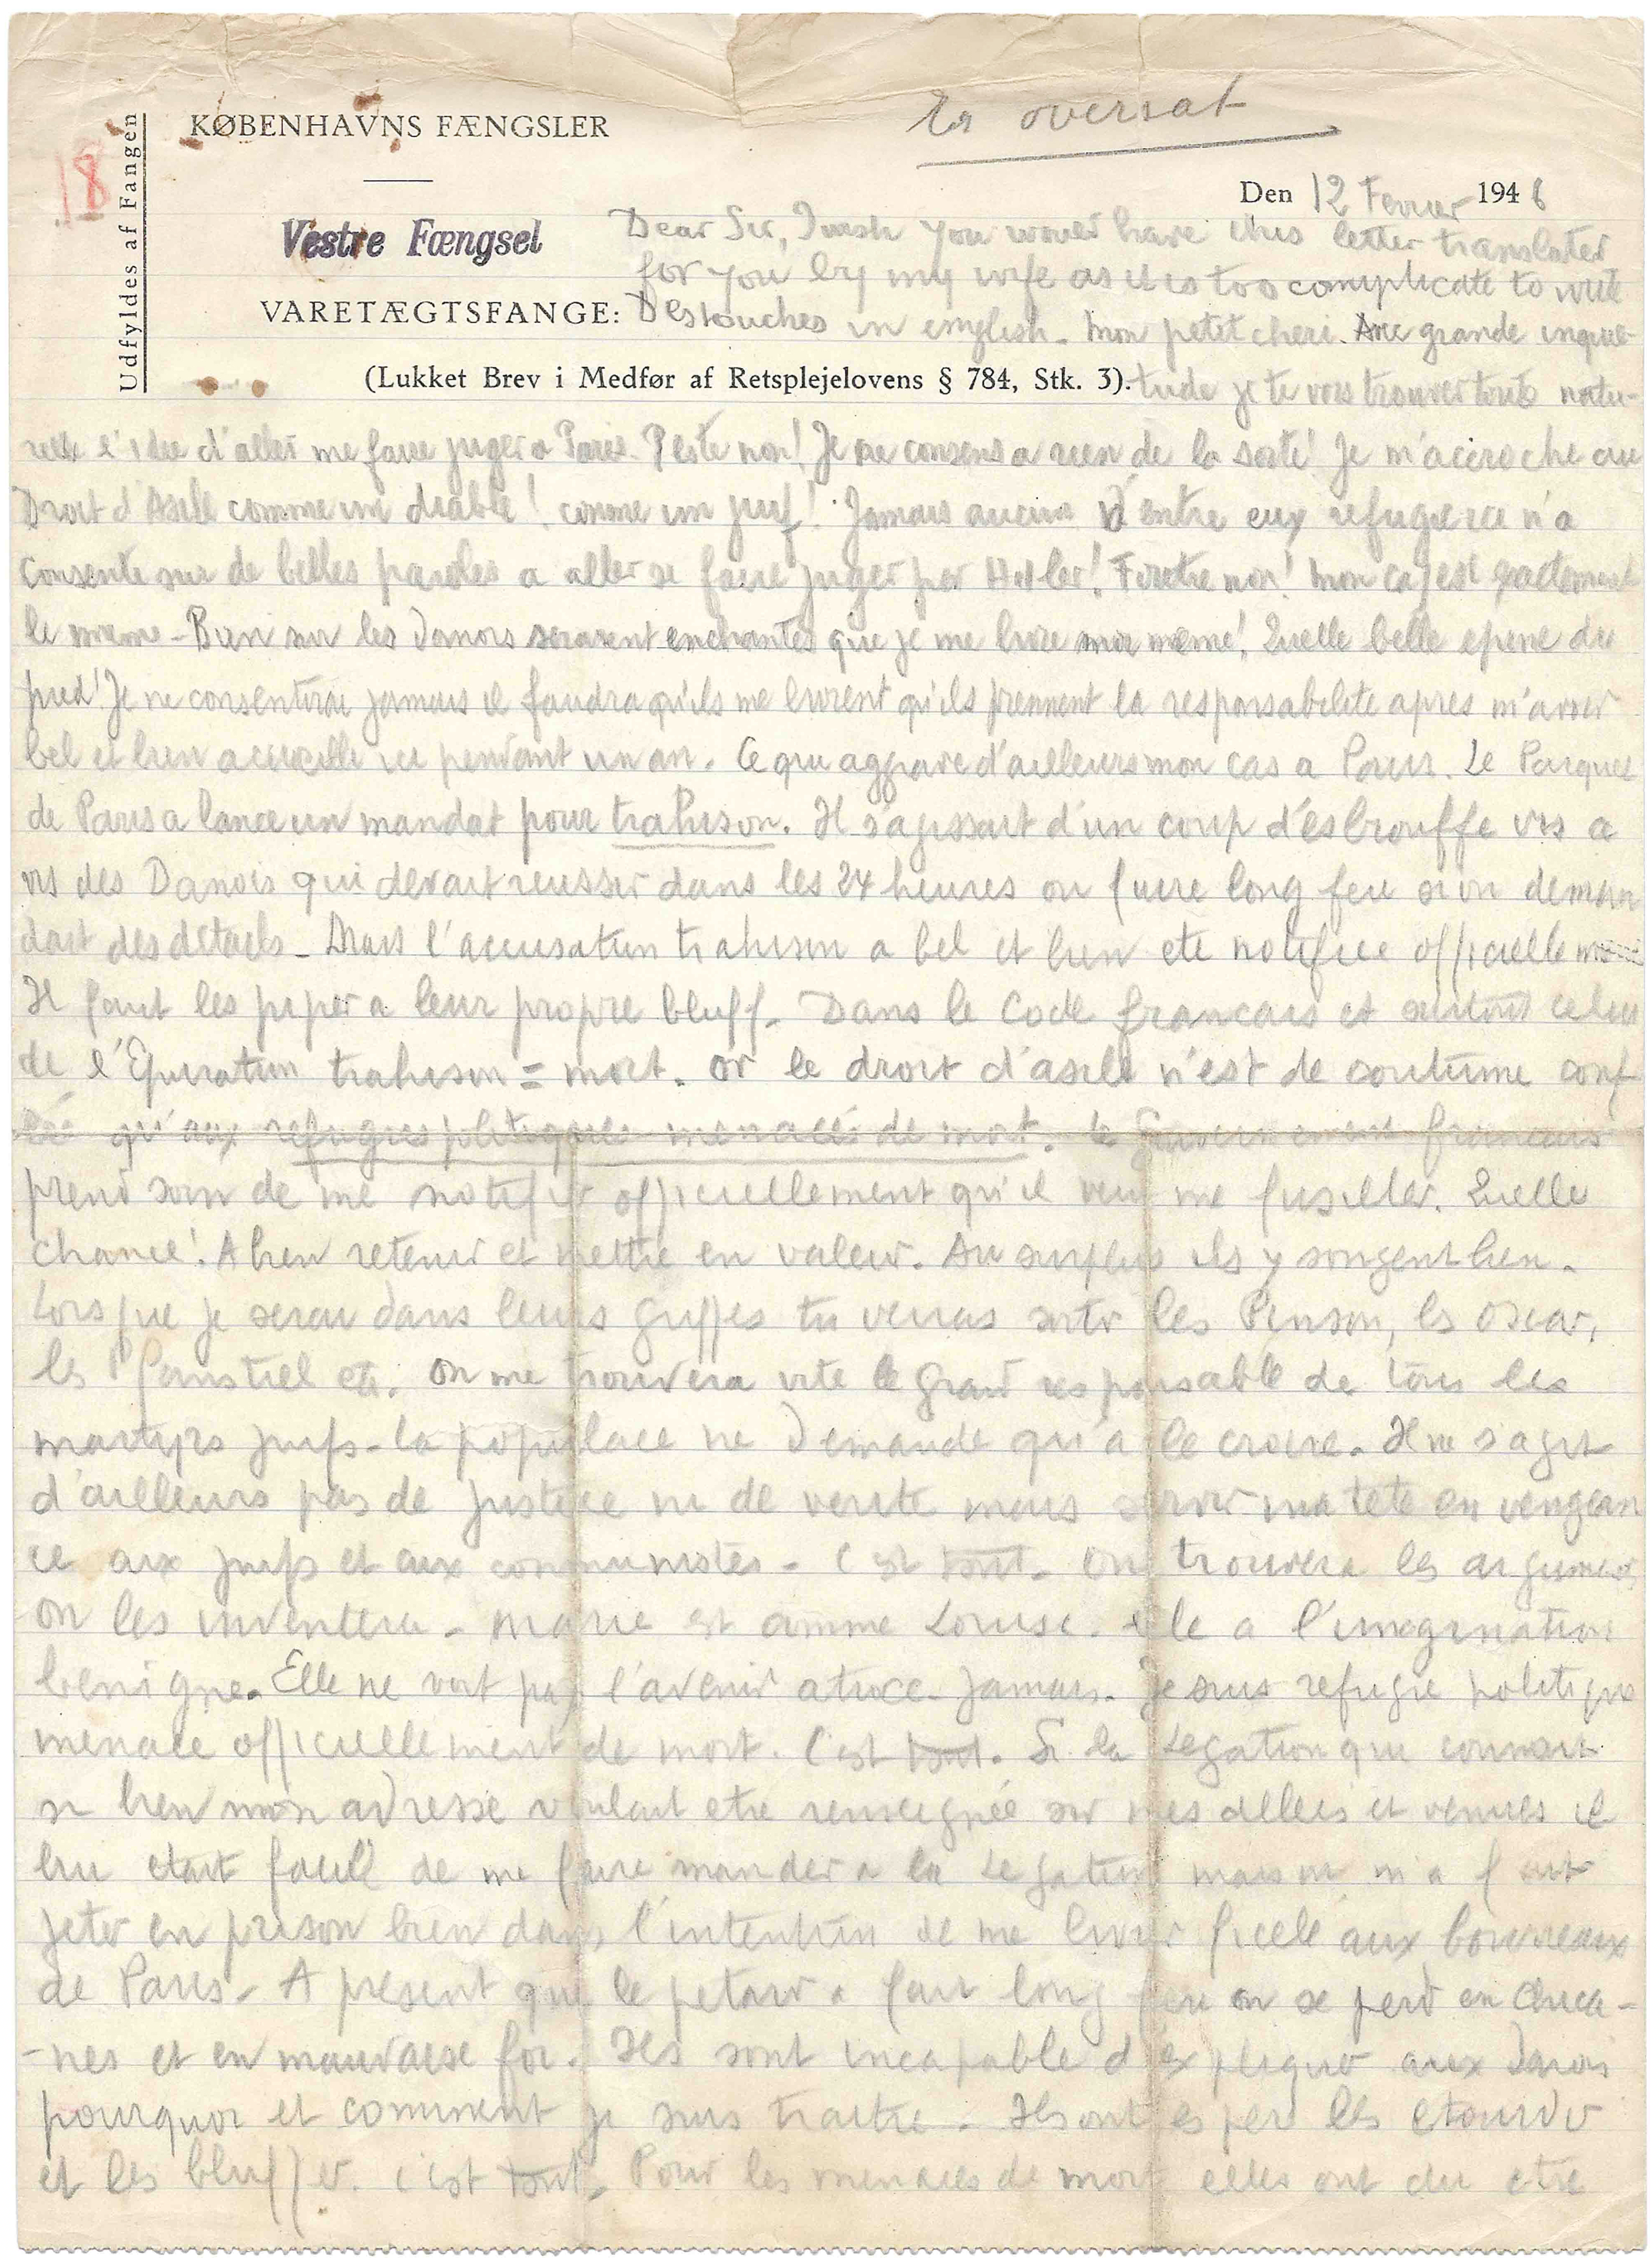 KØBENHAVNS FÆNGSLER
Er oversat
Udfyldes af Fangen
18
Den 12 Fevrier 1946
Vestre Fængsel
Dear Sir, I wish you would have this letter translated
for you by my wife as it is too complicate to write
VARETÆGTSFANGE: Destouches in english. Mon petit cheri. Avec grande inquie-
(Lukket Brev i Medfør af Retsplejelovens § 784, Stk. 3). tude je te vois trouver toute natu-
relle l'idee d'aller me faire juger a Paris. Peste non! Je ne consens a rien de la sorte! Je m'accroche au
Droit d'Asile comme un diable! comme un juif! Jamais aucun d'entre eux refugie ici n'a
consenti sur de belles paroles a aller se faire juger par Hitler! Foutre non! Mon cas est exactement
le meme - Bien sur les Danois seraient enchantés que je me livre moi meme! Quelle belle epine du
pied! Je ne consentirai jamais il faudra qu'ils me livrent qu'ils prennent la responsabilite apres m'avoir
bel et bien accueilli ici pendant un an. Ce qui aggrave d'ailleurs mon cas a Paris. Le Parquet
de Paris a lance un mandat pour trahison. Il s'agissait d'un coup d'esbrouffe vis a
vis des Danois qui devait reussir dans les 24 heures ou faire long feu si on deman
dait des détails - Mais l'accusation trahison a bel et bien ete notifiee officiellement
Il faut les piper a leur propre bluff. Dans le Code francais et surtout celui
de l'Epuration trahison = mort. Or le droit d'asile n'est de coutume conf
éré qu'aux refugies politiques menacés de mort. Le Gouvernement francais
prend soin de me notifier officiellement qu'il veut me fusiller. Quelle
chance! A bien retenir et mettre en valeur. Au surplus ils y songent bien.
Lorsque je serai dans leurs griffes tu verras sortir les Pinson, les Oscar,
les etc. On me trouvera vite le grand responsable de tous les
martyrs juifs - la populace ne demande qu'a le croire. Il ne s'agit
d'ailleurs pas de justice ni de verite mais servir ma tete en vengean
ce aux juifs et aux communistes - C'est tout. On trouvera les arguments
on les inventera - Marie est comme Louise. Elle a l'imagination
benigne. Elle ne voit pas l'avenir atroce - Jamais. Je suis refugie politique
menace officiellement de mort. C'est tout. Si la Legation qui connait
si bien mon adresse voulait etre renseignée sur mes allees et venues il
lui etait facile de me faire mander a la Legation mais on m'a fait
jeter en prison bien dans l'intention de me livrer ficelé aux bourreaux
de Paris. A present que le petard a fait long feu on se perd en chica-
-nes et en mauvaise foi. Ils sont incapable d'expliquer aux Danois
pourquoi et comment je suis traitre. Ils ont espere les etourdir
et les bluffer. C'est tout. Pour les menaces de mort elles ont du etre